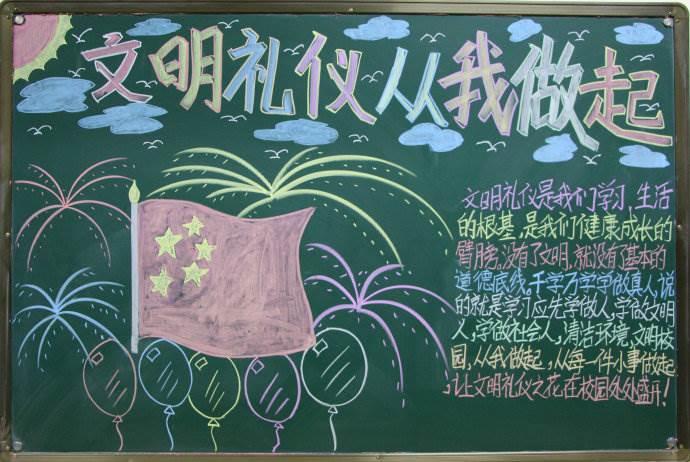 文明礼仪从我做起
文明礼仪是我们学习、生活
的根基,是我们健康成长的
臂膀。没有了文明,就没有基本的
道德底线。千学万学学做真人,说
的就是学习应先学做人,学做文明
人,学做社会人,清洁环境,文明校
园,从我做起,从每一件小事做起,
让文明礼仪之花在校园处处盛开!